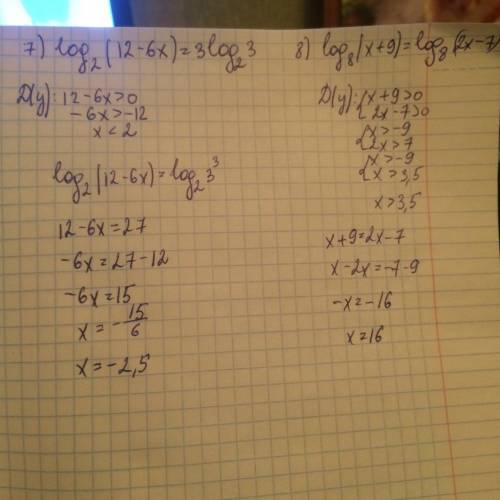 7) log₂(12-6x)=3log₂3
Д(y): 12-6x>0
-6x>-12
x<2
log₂(12-6x)=log₂3³
12-6x=27
-6x=27-12
-6x=15
x=-15/6
x=-2,5
8) log₈(x+9)=log₈(2x-7)
Д(y): {x+9>0
{2x-7>0
{x>-9
{2x>7
{x>-9
{x>3,5
x>3,5
x+9=2x-7
x-2x=-7-9
-x=-16
x=16